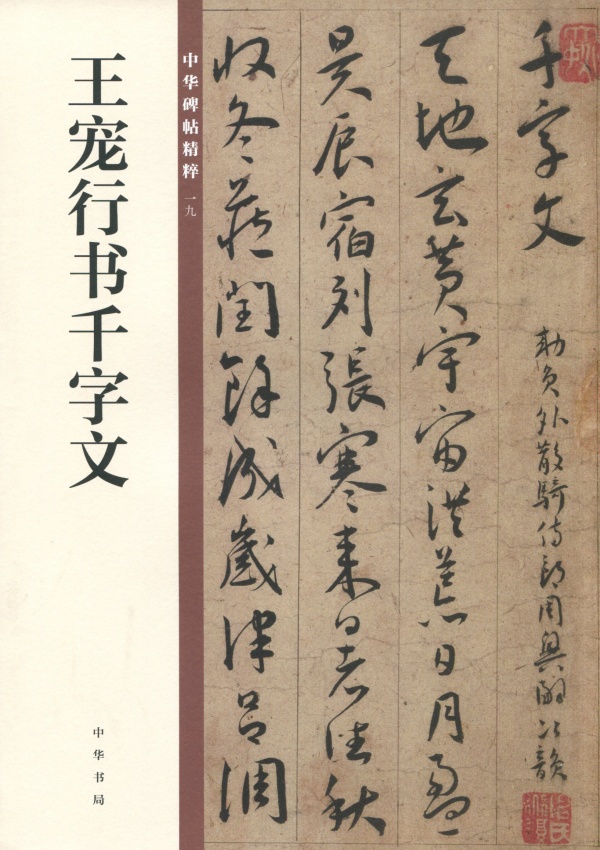 王宠行书千字文
中华书局
中华碑帖精粹 一九
千字文
勅員外散騎侍郎周興嗣次韻
天地玄黃宇宙洪荒日月盈
昃辰宿列張寒来暑往秋
収冬蔵閏餘成歲律吕調